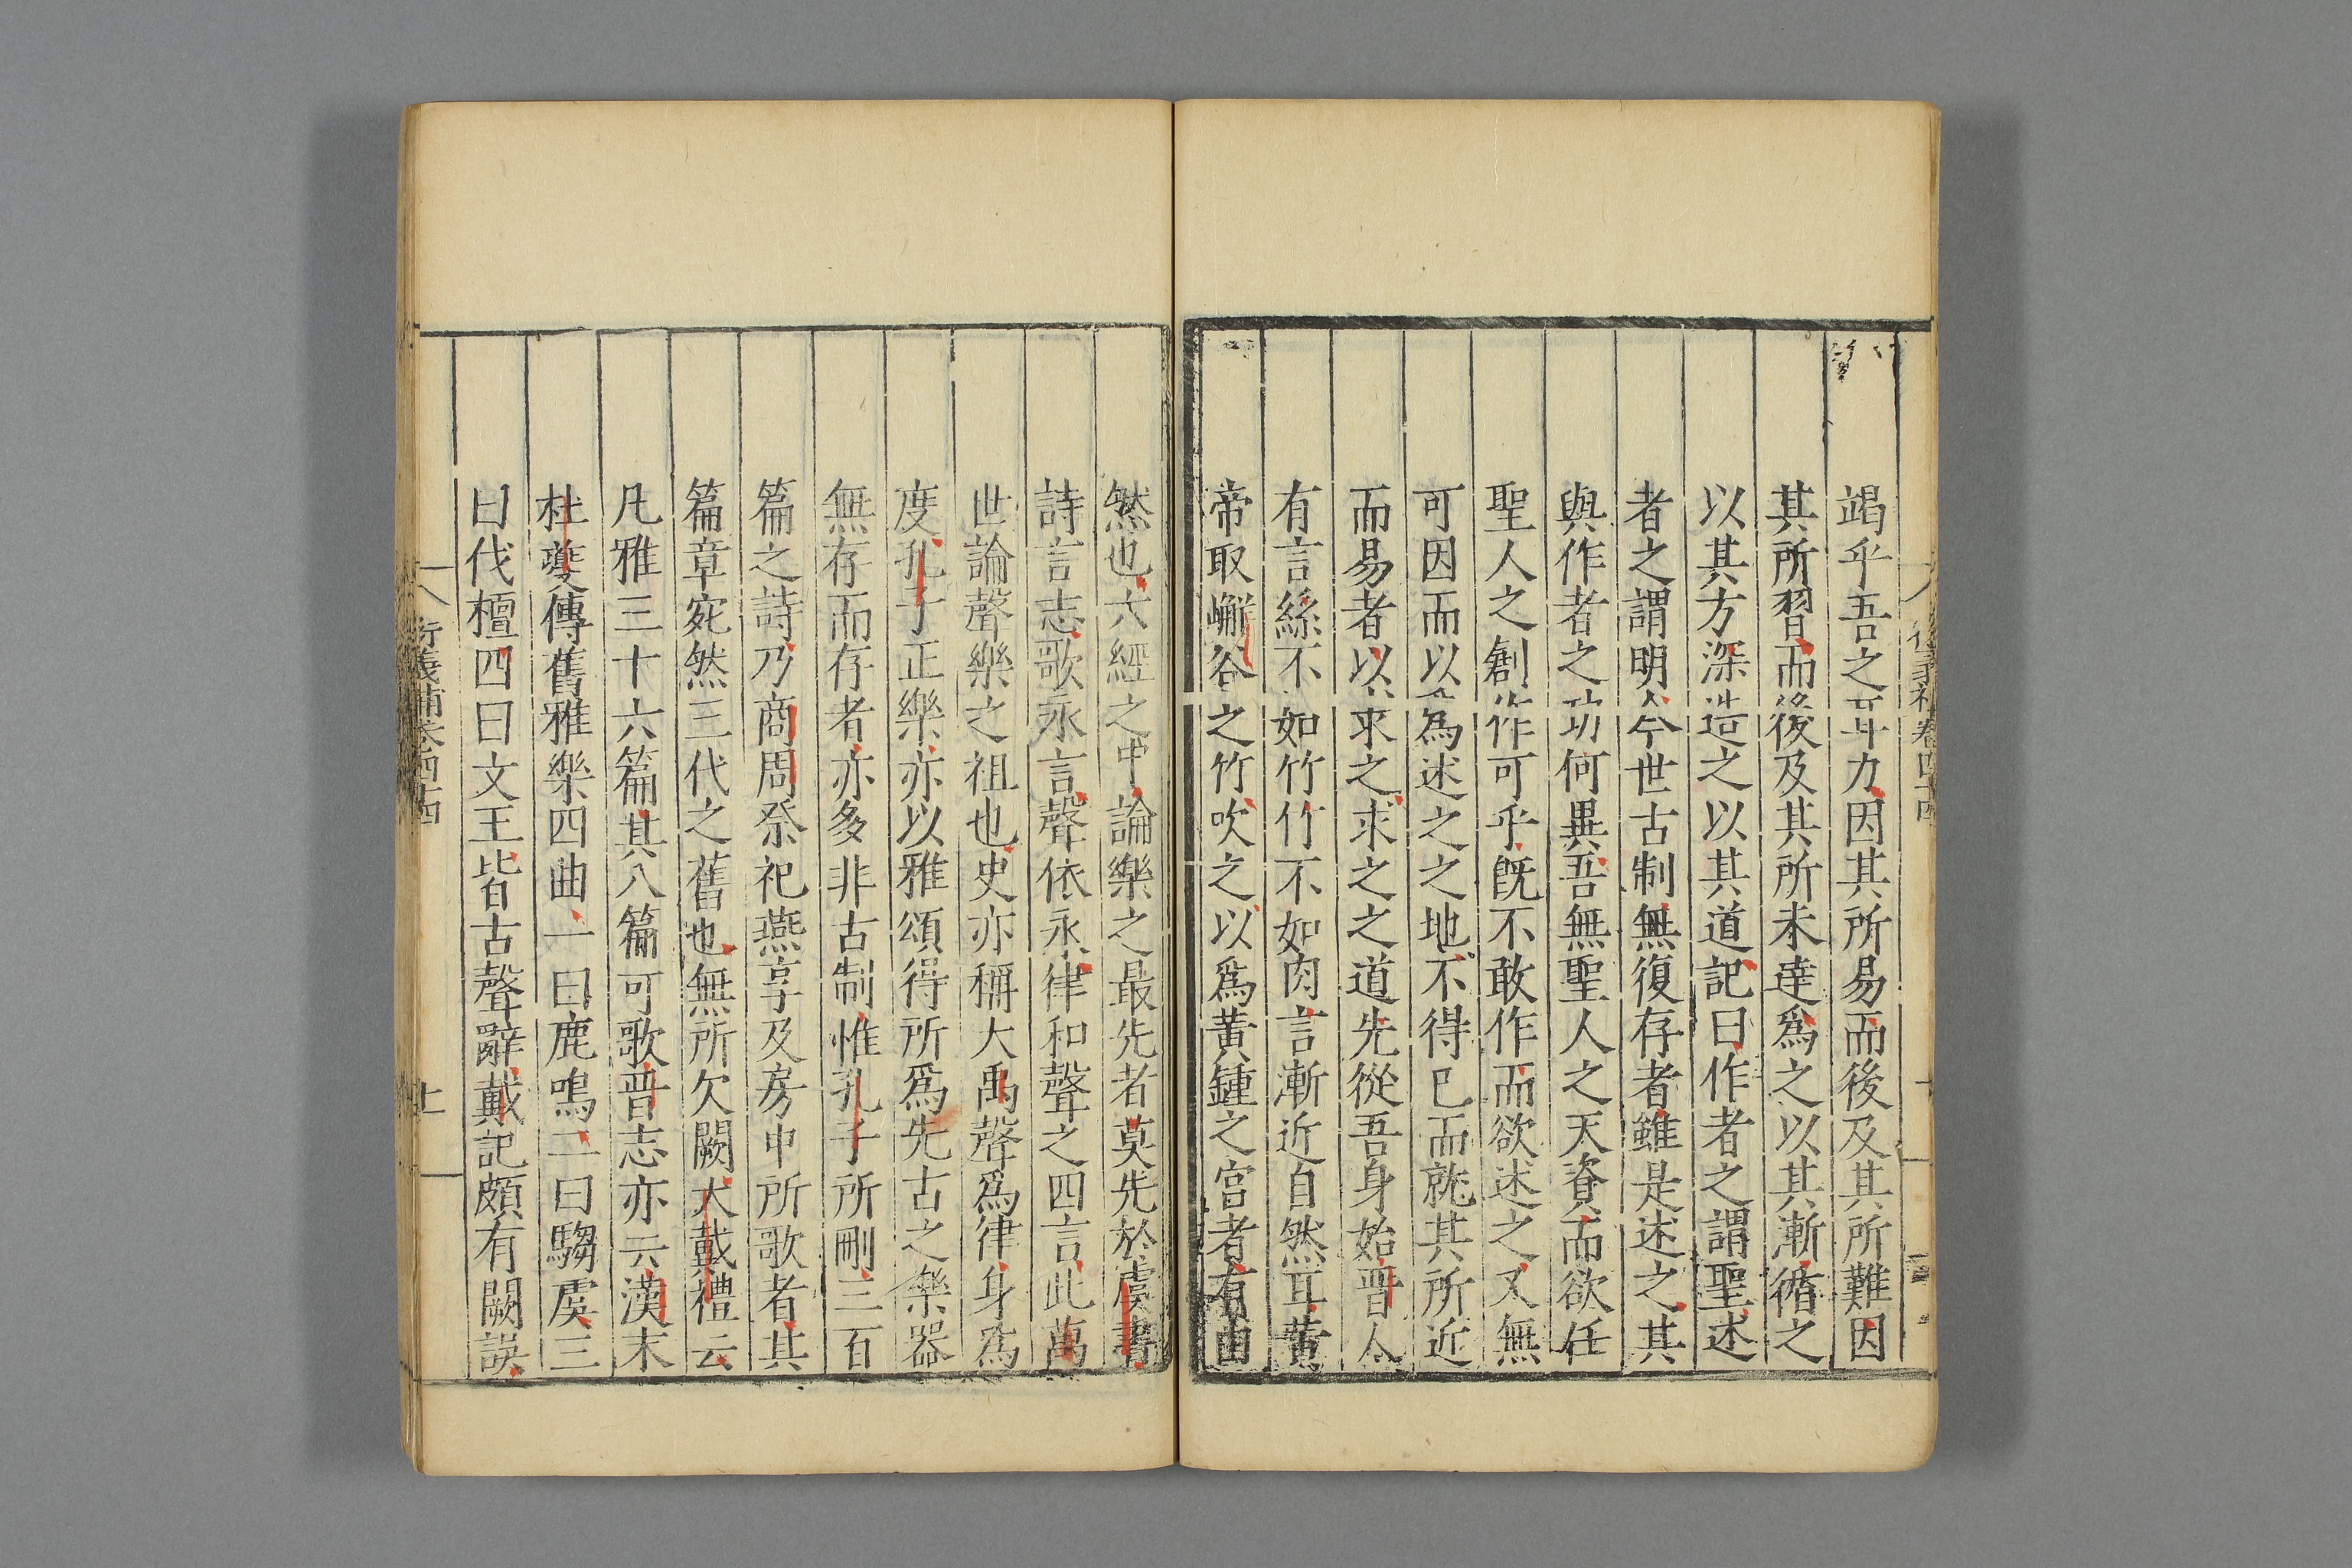 竭乎吾之耳力因其所易而後及其所難因
其所習而後及其所未達爲之以其漸循之
以其方深造之以其道記曰作者之謂聖述
者之謂明今世古制無復存者雖是述之其
與作者之功何異吾無聖人之天資而欲任
聖人之創作可乎旣不敢作而欲述之又無
可因而以爲述之之地不得已而就其所近
而易者以求之求之之道先從吾身始晉人
有言絲不如竹竹不如肉言漸近自然耳黃
帝取嶰谷之竹吹之以爲黃鍾之宮者有由
然也六經之中論樂之最先者莫先於虞書
詩言志歌永言聲依永律和聲之四言此萬
世論聲樂之祖也史亦稱大禹聲爲律身爲
度孔子正樂亦以雅頌得所爲先古之樂器
無存而存者亦多非古制惟孔子所刪三百
篇之詩乃商周祭祀燕享及房中所歌者其
篇章宛然三代之舊也無所欠闕大戴禮云
凡雅三十六篇其八篇可歌晉志亦云漢末
杜夔傳舊雅樂四曲一曰鹿鳴二曰騶虞三
曰伐檀四曰文王皆古聲辭戴記頗有闕誤